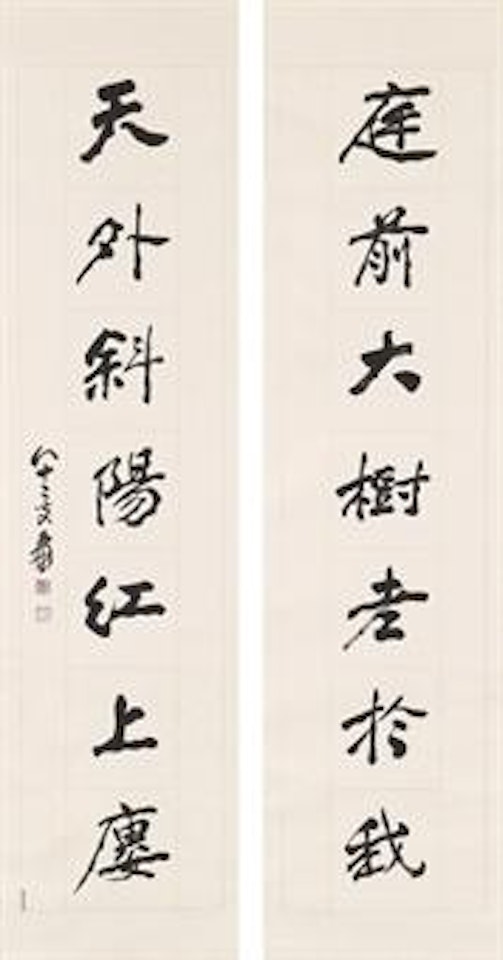 庭前大樹老於我
天外斜陽紅上廔
八十二叟爰